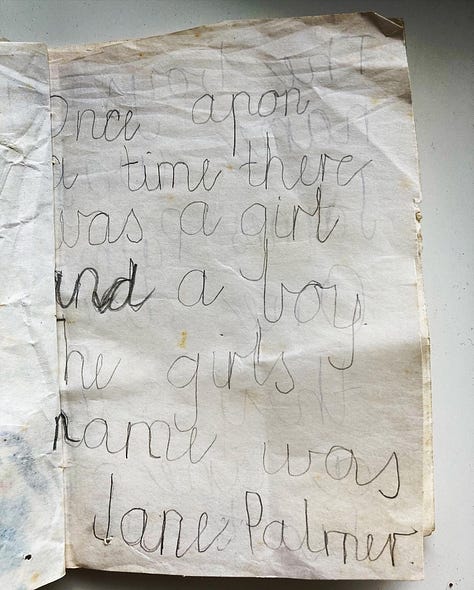 Once apon
a time there
was a girl
and a boy.
he girls
name was
Jane Palmer.